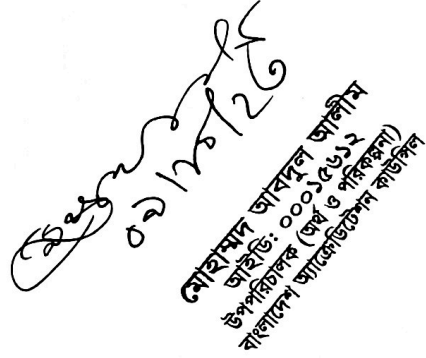 ০১/১০/২৫
মোহাম্মদ আবদুল আলীম
আইডি: ০০০১৫৬১২
উপপরিচালক (অর্থ ও পরিকল্পনা)
বাংলাদেশ অ্যাক্রেডিটেশন কাউন্সিল